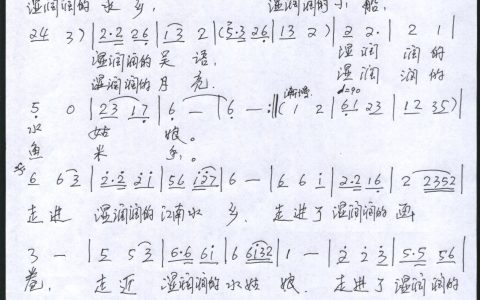 湿润润的水乡, 湿润润的小船,
24 3) | 2·2 26 | 13 2 | (5·3 26 | 13 2) | 2 2· | 2 1 |
湿润润的吴 语, 湿 润 润 的
湿润润的月 亮. 湿 润 润 的
5 0 | 23 17 | 6 — | 6 — :‖ (1 2 | 61 23 | 12 35) |
水 姑 娘。
鱼 米 乡。
6 63 | 2·2 21 | 56 127 | 6 — | 6 6 1 | 2·2 16 | 2 2352 |
走进 湿润润的江南水 乡. 走进了湿润润的画
3 — | 5 53 | 6·6 61 | 6 6132 | 1 — | 2 2 3 | 5·5 56 |
卷, 走近 湿润润的水姑 娘. 走进了湿润润的